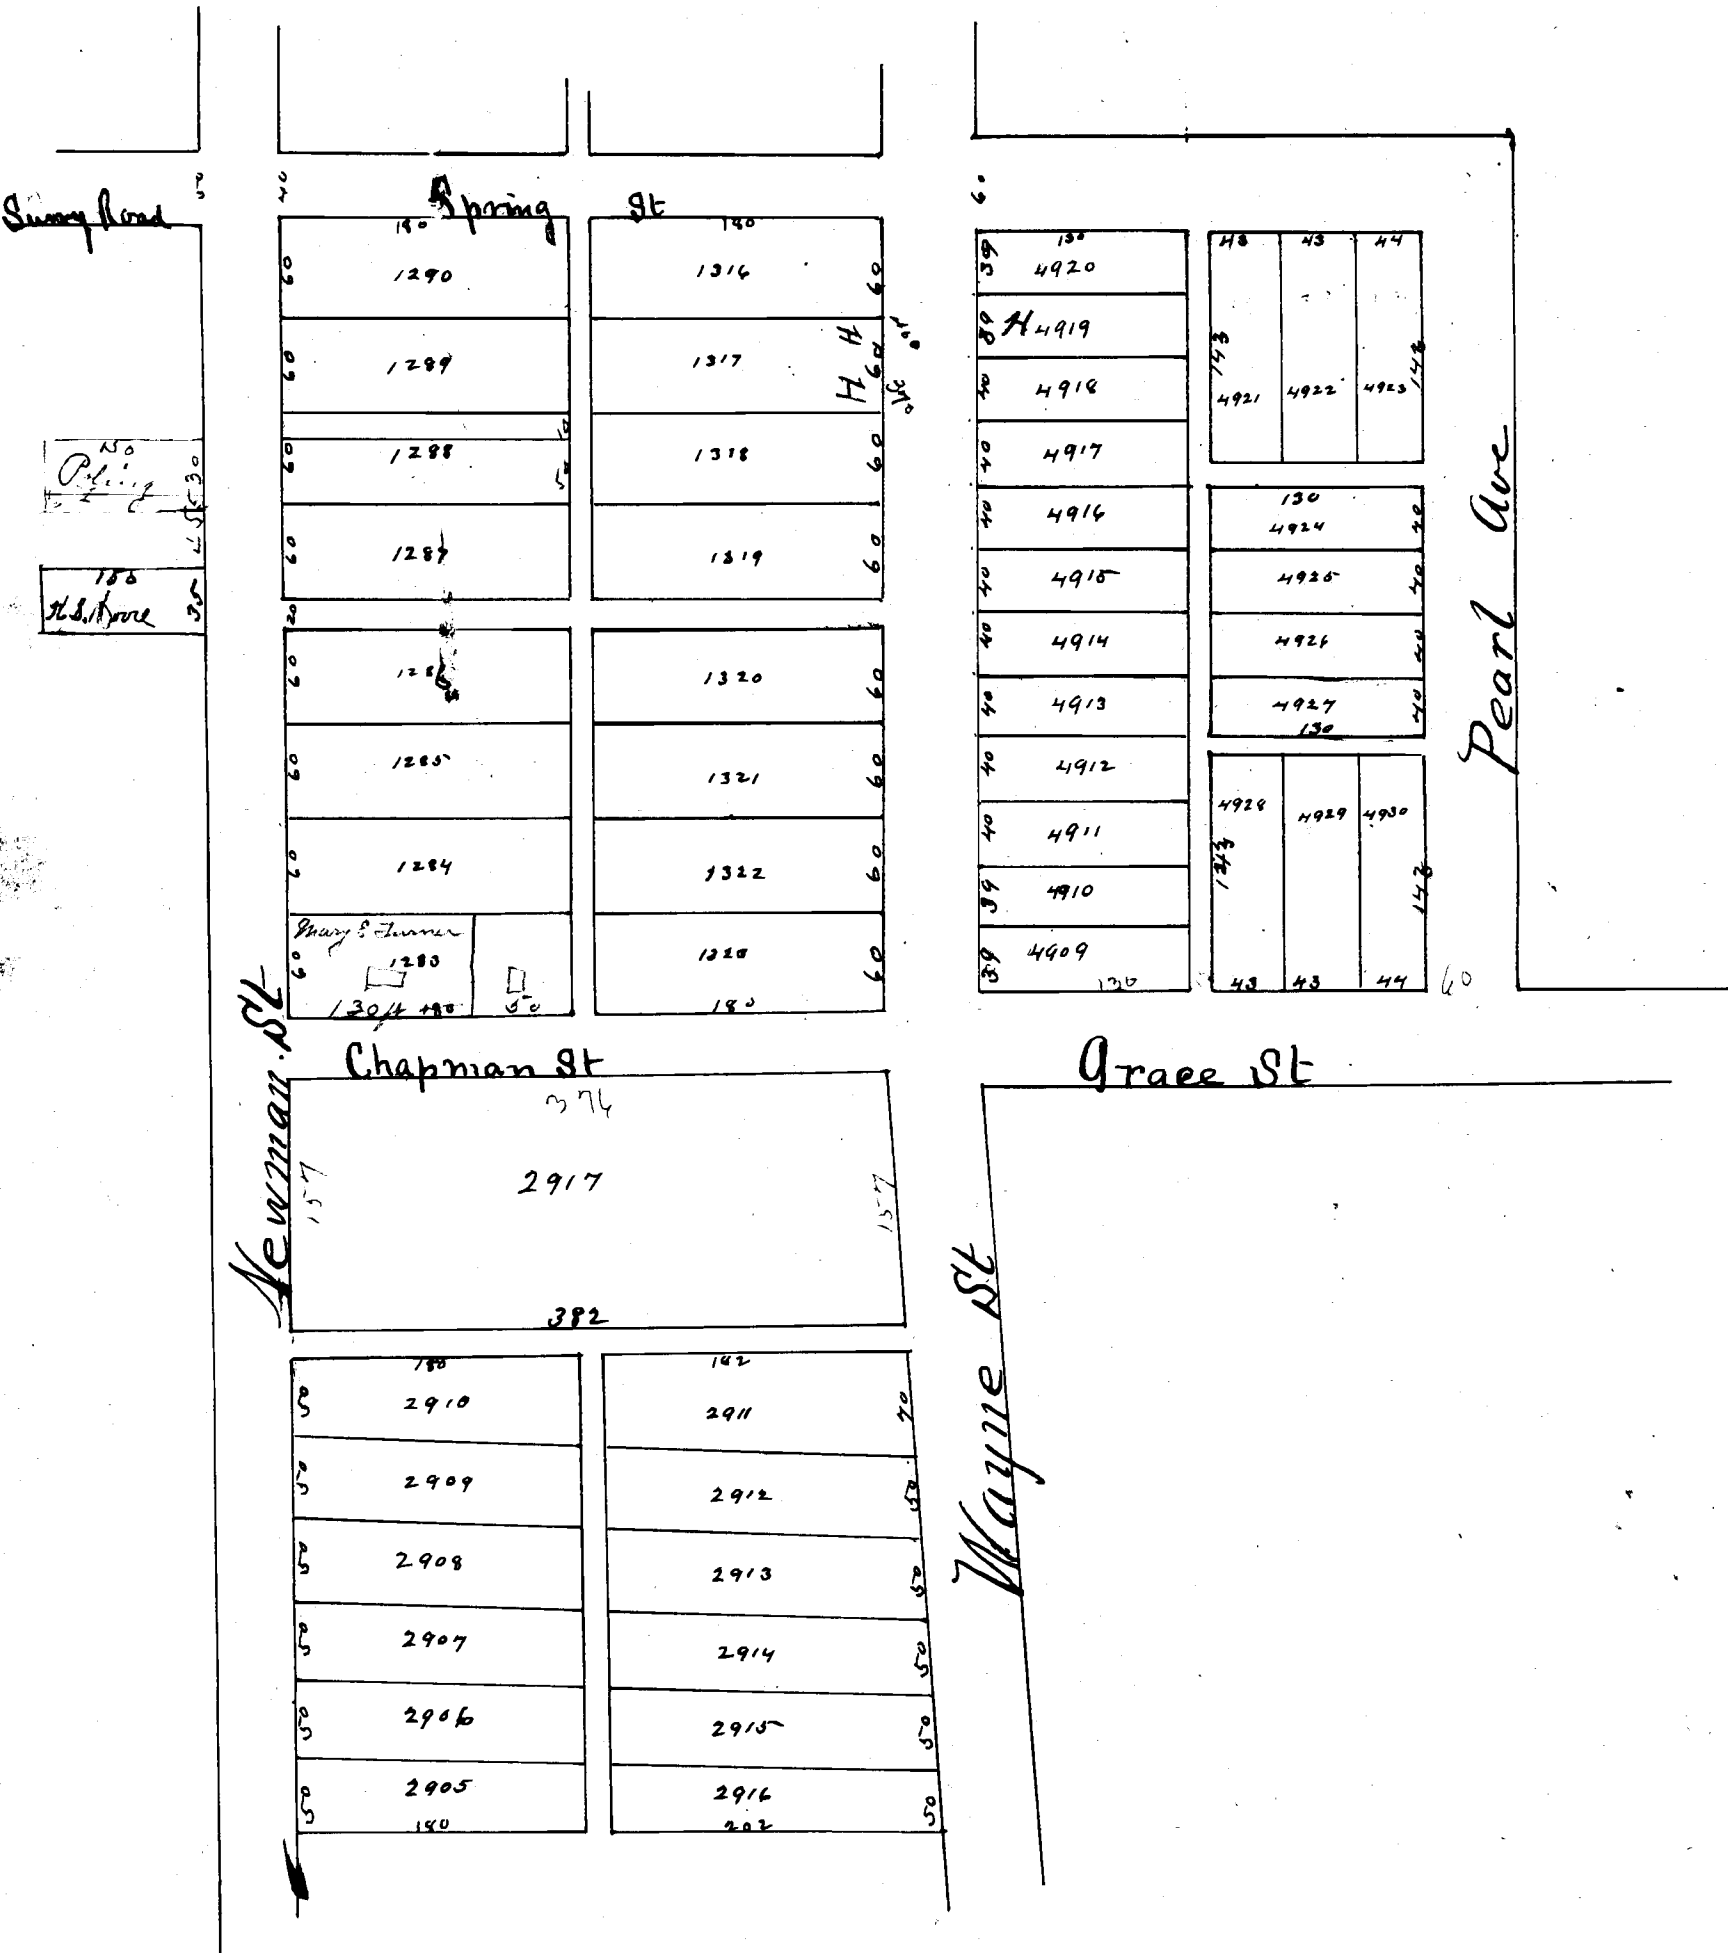 Spring St
40
60
180
1290
60
1289
60
1288
60
10
50
1287
60
20
1286
60
1285
60
1284
60
Mary E Turner
1283
60
130 ft
50
180
1316
60
H
H
1317
60
1318
60
1319
60
1320
60
1321
60
1322
60
60
180
130
4920
39
H 4919
39
4918
40
4917
40
4916
40
4915
40
4914
40
4913
40
4912
40
4911
40
4910
39
4909
39
130
43 43 44
143
143
4921 4922 4923
130
4924
40
4925
40
4926
40
4927
40
130
4928 4929 4930
143
143
43 43 44
60
Pearl Ave
30
150
35
Chapman St
Grace St
Newman St
376
2917
157
157
382
Wayne St
180
2910
50
2909
50
2908
50
2907
50
2906
50
2905
50
180
182
2911
70
2912
50
2913
50
2914
50
2915
50
2916
50
202